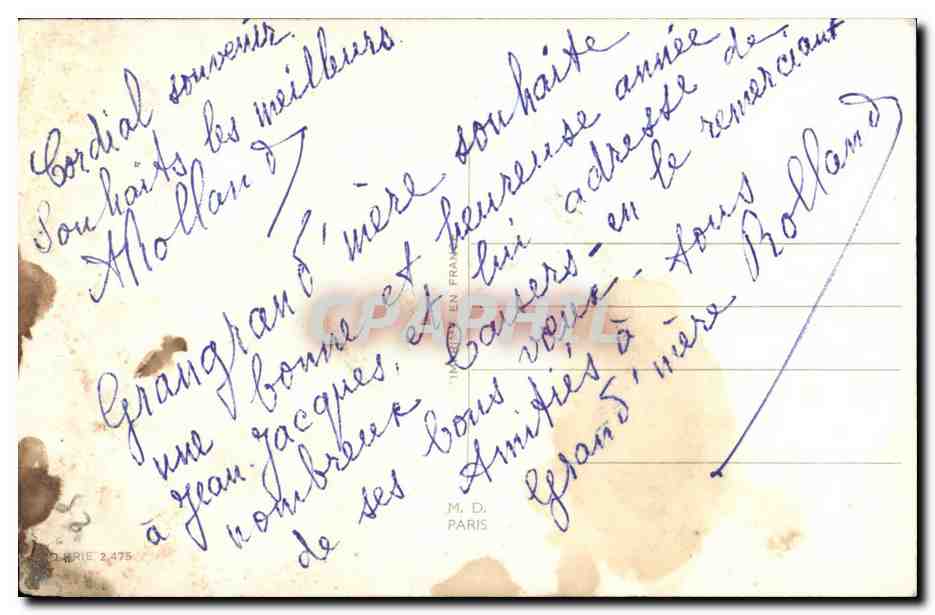 Cordial souvenir.
Souhaits les meilleurs.
ARolland
Grangrand'mère souhaite
une bonne et heureuse année
à Jean-Jacques, et lui adresse de
nombreux baisers - en le remerciant
de ses bons vœux -
Amitiés à tous
Grand'mère Rolland
IMPRIMÉ EN FRANCE
CPAPHIL
M. D.
PARIS
RIE 2.475